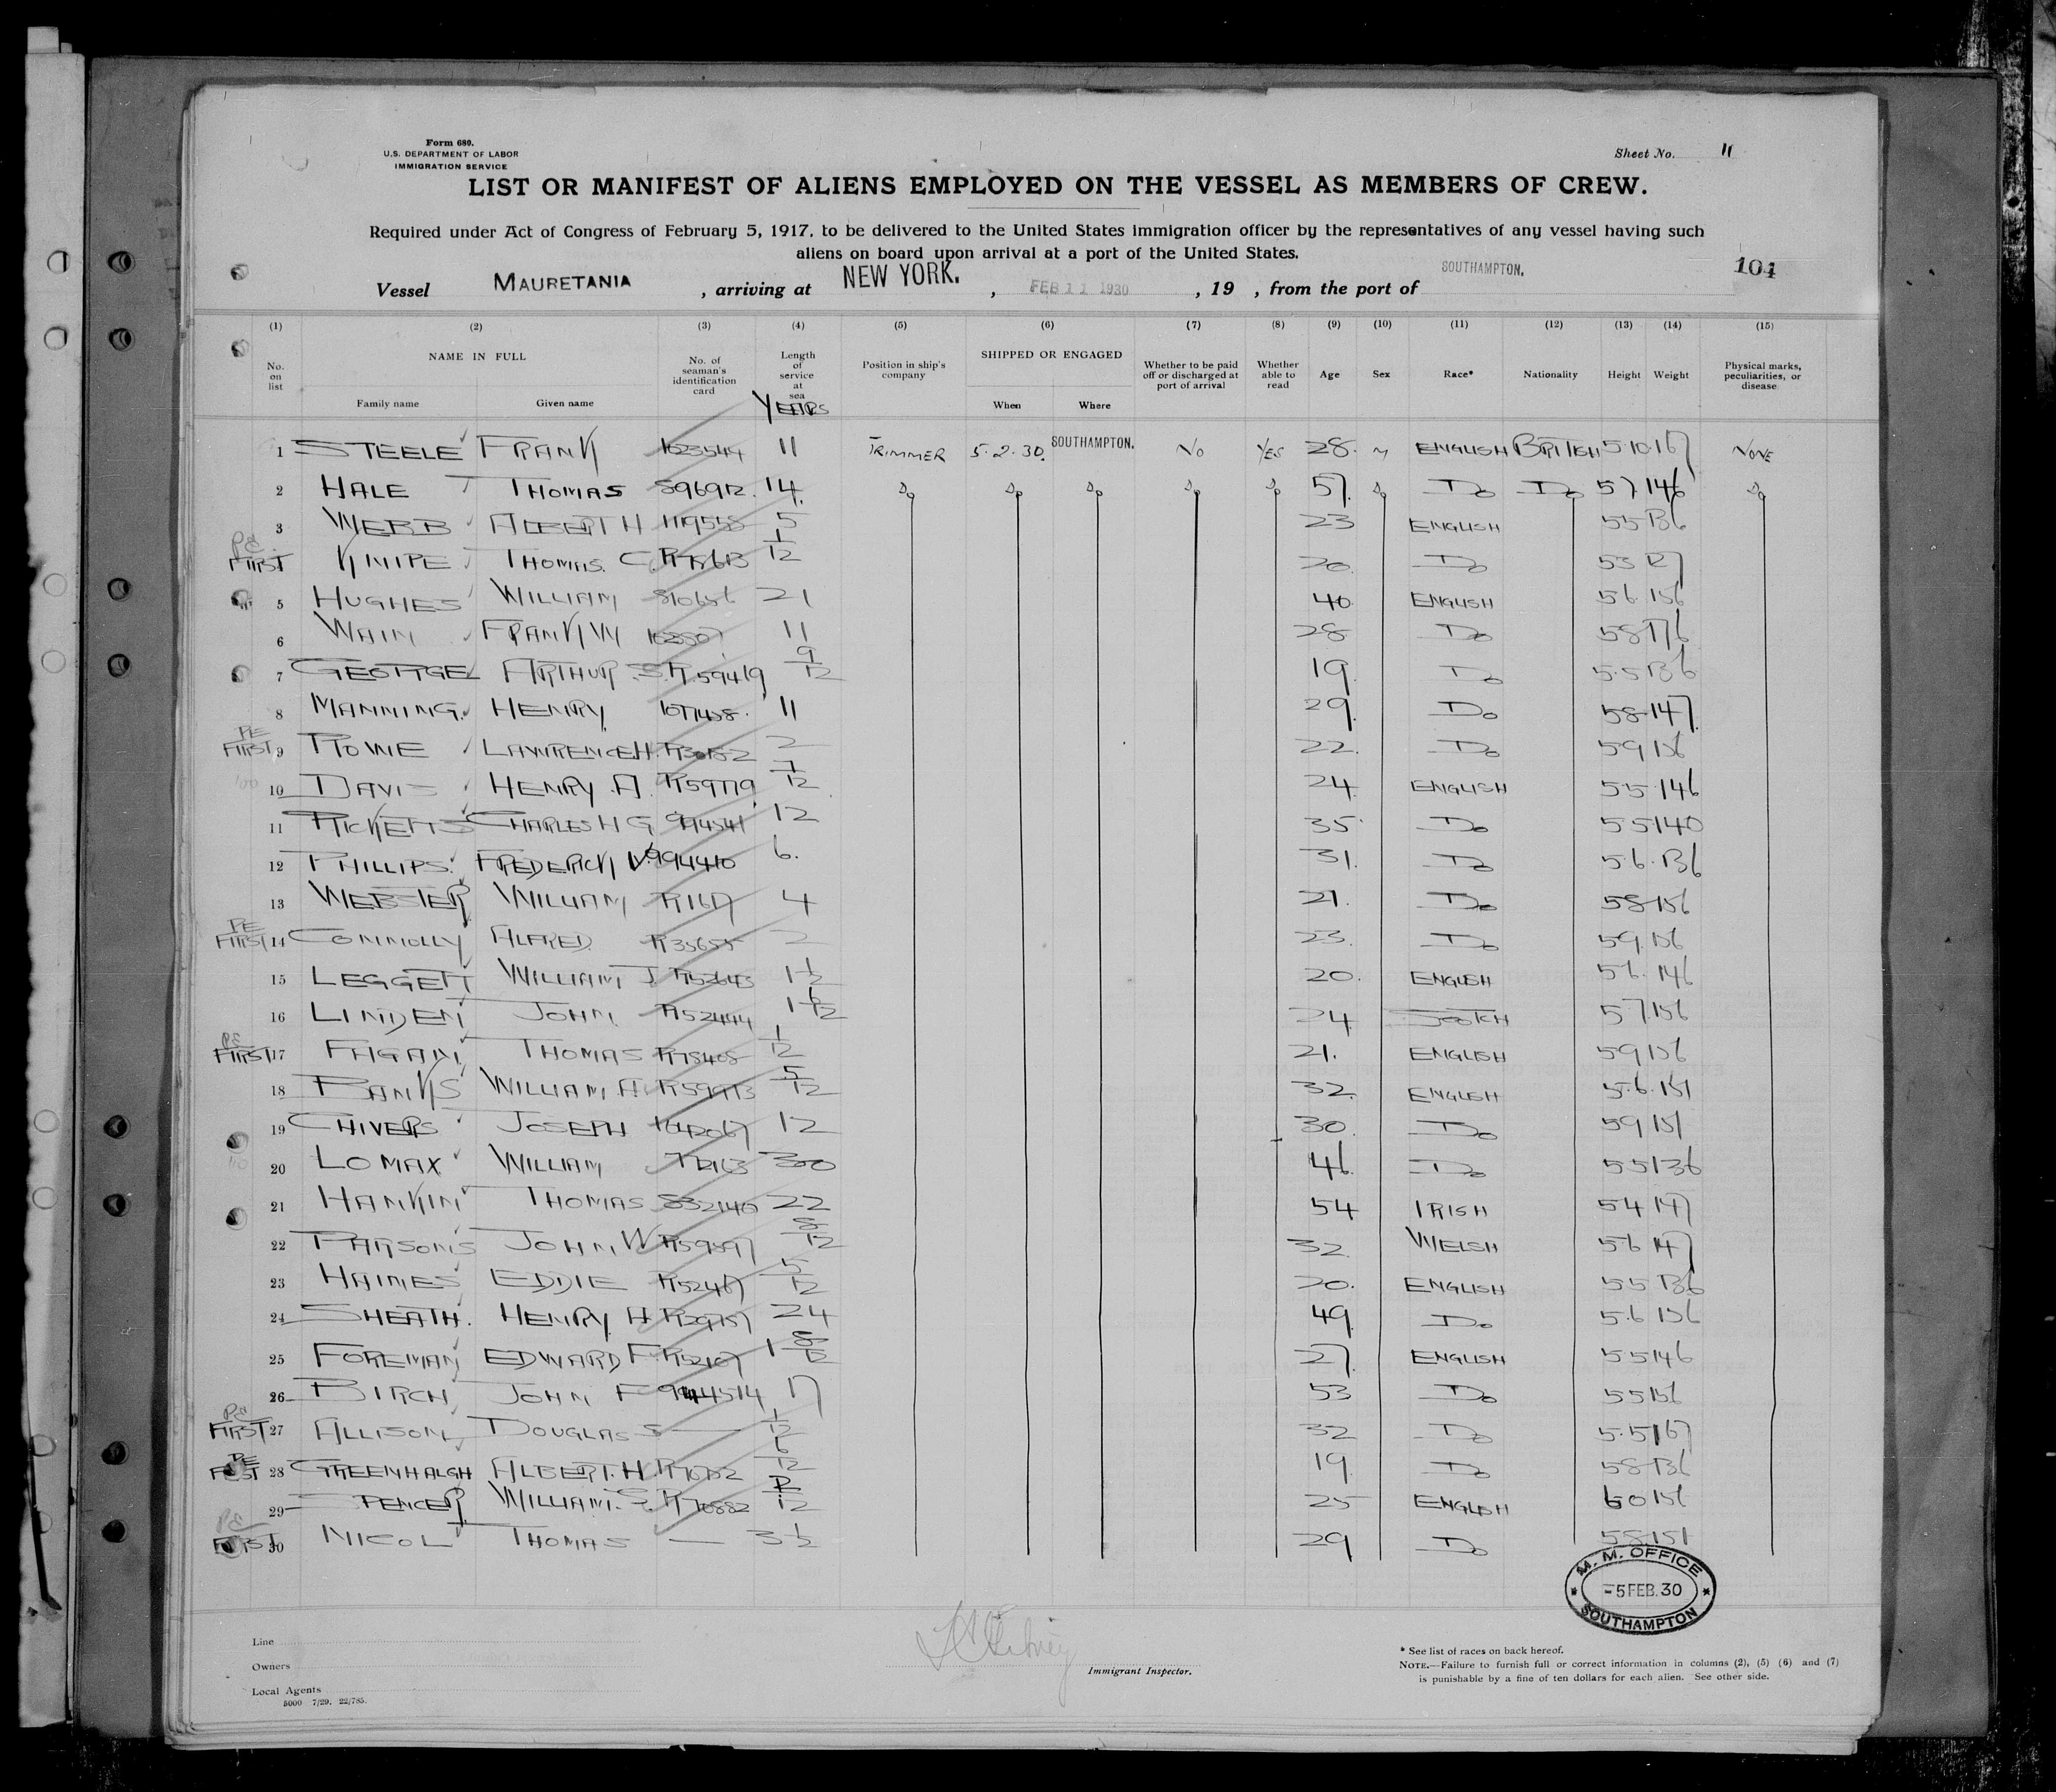 Form 689.
U.S. DEPARTMENT OF LABOR
IMMIGRATION SERVICE
Sheet No. 11
LIST OR MANIFEST OF ALIENS EMPLOYED ON THE VESSEL AS MEMBERS OF CREW.
Required under Act of Congress of February 5, 1917, to be delivered to the United States immigration officer by the representatives of any vessel having such
aliens on board upon arrival at a port of the United States.
Vessel MAURETANIA , arriving at NEW YORK. , FEB 11 1930 , 19 , from the port of SOUTHAMPTON. 101
(1) (2) (3) (4) (5) (6) (7) (8) (9) (10) (11) (12) (13) (14) (15)
No. on list NAME IN FULL Family name Given name No. of seaman's identification card Length of service at sea YEARS Position in ship's company SHIPPED OR ENGAGED When Where Whether to be paid off or discharged at port of arrival Whether able to read Age Sex Race* Nationality Height Weight Physical marks, peculiarities, or disease
1 STEELE FRANK 11 TRIMMER 5.2.30. SOUTHAMPTON. NO YES 28. M ENGLISH BRITISH 5 10 167 NONE
2 HALE THOMAS 896912. 14. Do Do Do Do Do 57. Do Do Do 57 146 Do
3 WEBB ALBERT H 5 23 ENGLISH 55 136
PE FIRST KNIPE THOMAS. C. 1/12 20. Do 53 127
5 HUGHES WILLIAM 21 40. ENGLISH 56. 156
6 WAIN FRANK W 11 28 Do 58 176
7 GEORGE ARTHUR. S. R.59419 9/12 19. Do 5.5 136
8 MANNING. HENRY 11 29. Do 58 147.
PE FIRST 9 ROWE LAWRENCE H. 2 22. Do 59 156
10 DAVIS HENRY. A. R59779 7/12 24. ENGLISH 55. 146
11 RICKETTS CHARLES H G 12 35. Do 55 140
12 PHILLIPS. FREDERICK W. 994410 6. 31. Do 5.6. 136
13 WEBSTER WILLIAM 4 21. Do 58 156
PE FIRST 14 CONNOLLY ALFRED. R35655 2 23. Do 59. 156
15 LEGGETT WILLIAM J. R52643 1 1/2 20. ENGLISH 56. 146
16 LINDEN JOHN. R52444 24 SCOTCH 57 156
PE FIRST 17 FAGAN THOMAS R78408 1/12 21. ENGLISH 59 156
18 BANKS WILLIAM. A. 5/12 32. ENGLISH 5.6. 151
19 CHIVERS JOSEPH 1042067 12 30. Do 59 151
20 LOMAX WILLIAM 30 46. Do 55 136
21 HANKIN THOMAS 832140 22 54 IRISH 54 147
22 PARSONS JOHN W R59597 8/12 32. WELSH 56 147
23 HAINES EDDIE R52467 5/12 20. ENGLISH 55 136
24 SHEATH. HENRY H 24 49 Do 5.6 156
25 FOREMAN EDWARD F. R52167 1 8/12 27. ENGLISH 55 146
26 BIRCH JOHN F 944514 17 53 Do 55 156
PE FIRST 27 ALLISON DOUGLAS S — 1/12 32 Do 5.5 167
PE FIRST 28 GREENHALGH ALBERT. H. 6/12 19. Do 58 136
29 SPENCER WILLIAM. S. R70882 25 ENGLISH 60 156
PE FIRST 30 NICOL THOMAS — 3 1/2 29 Do 58 151
M. M. OFFICE
-5 FEB. 30
SOUTHAMPTON
Line
Owners
Local Agents
5000 7/29. 22/785.
Immigrant Inspector.
* See list of races on back hereof.
NOTE.—Failure to furnish full or correct information in columns (2), (5) (6) and (7)
is punishable by a fine of ten dollars for each alien. See other side.